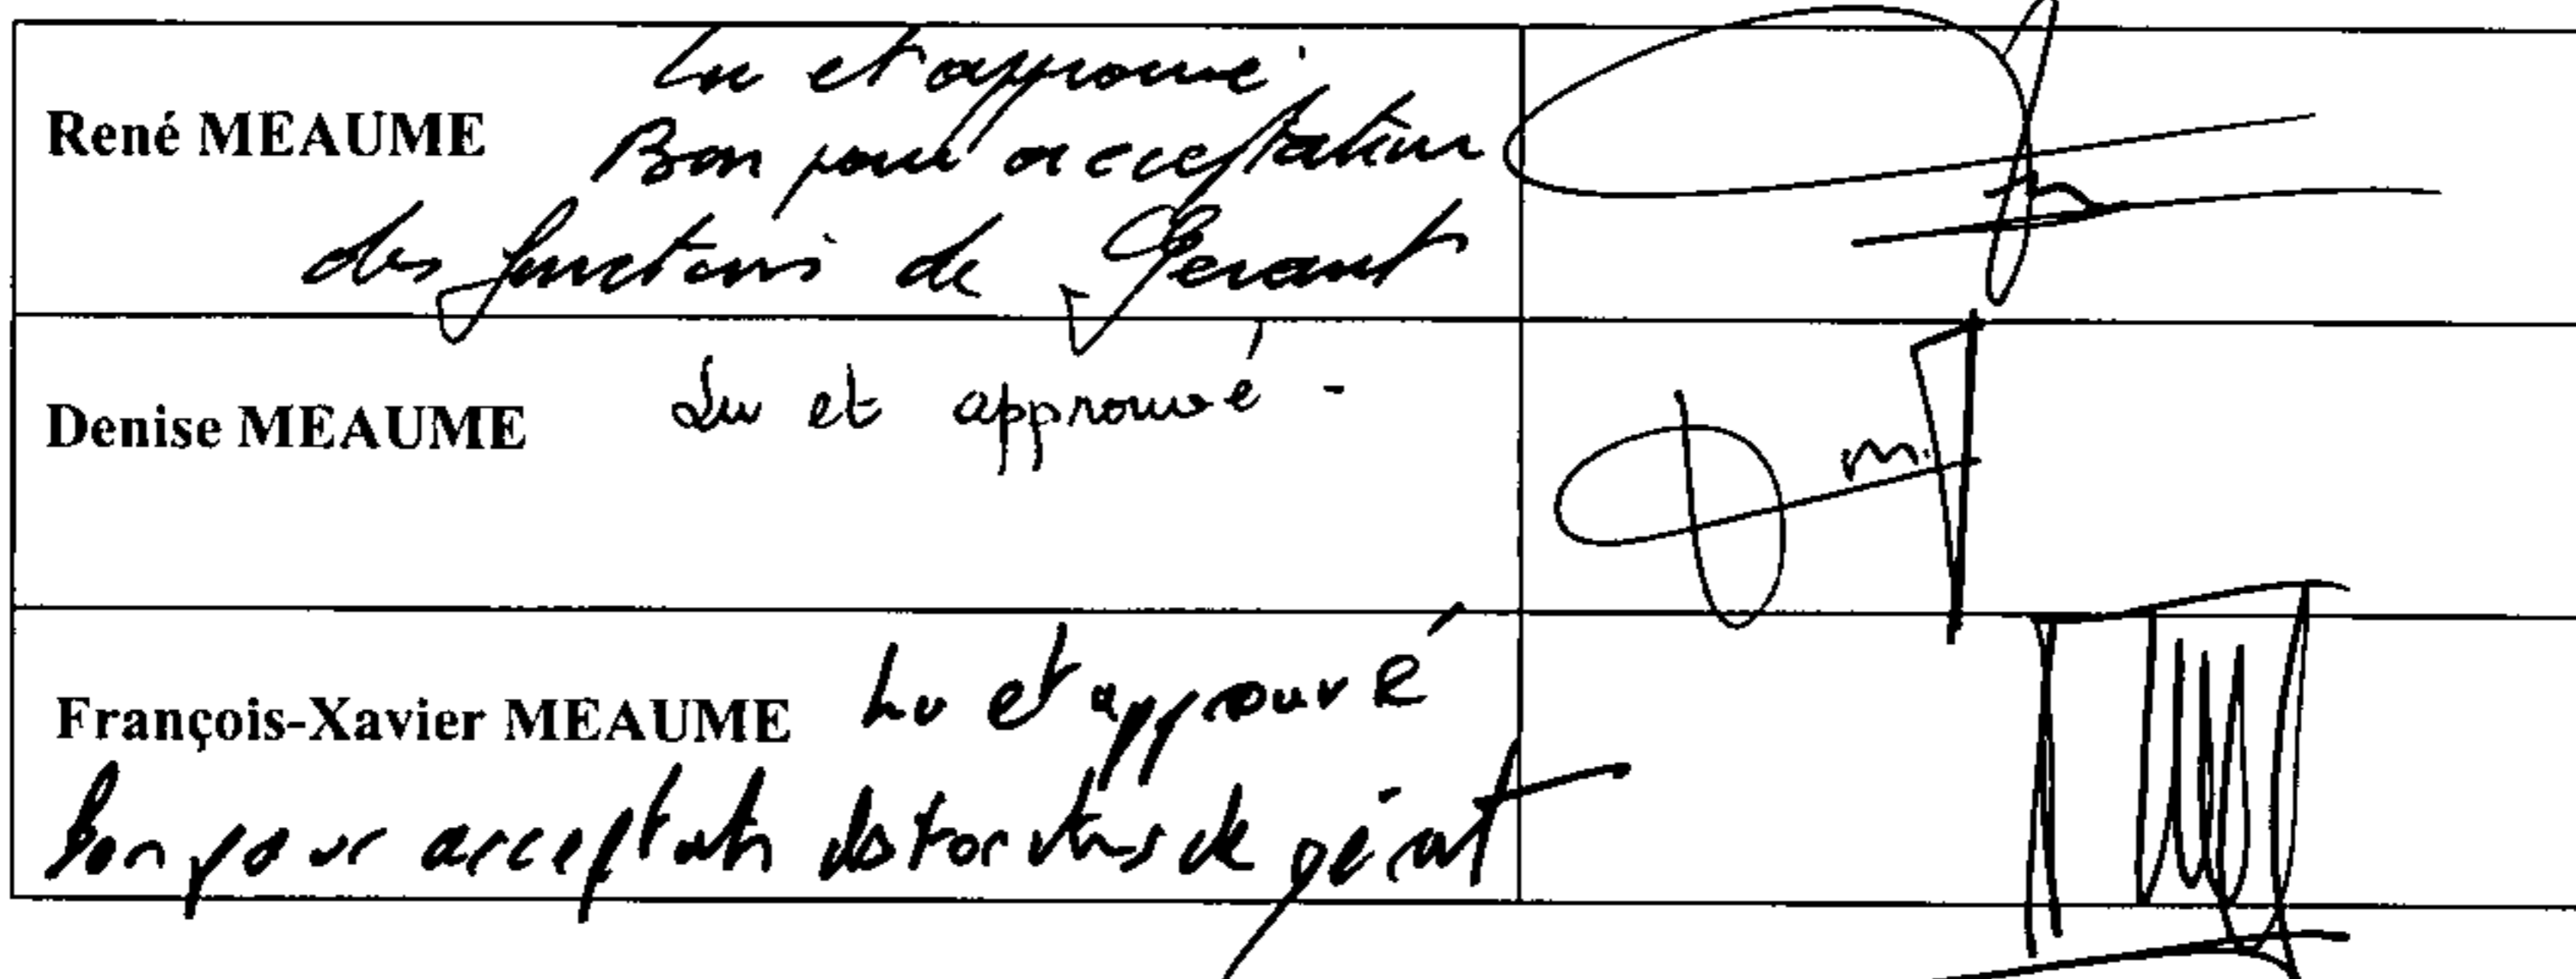 Lu et approuvé
René MEAUME Bon pour acceptation
des fonctions de Gérant
Denise MEAUME Lu et approuvé -
m.
François-Xavier MEAUME Lu et approuvé
Bon pour acceptation des fonctions de gérant